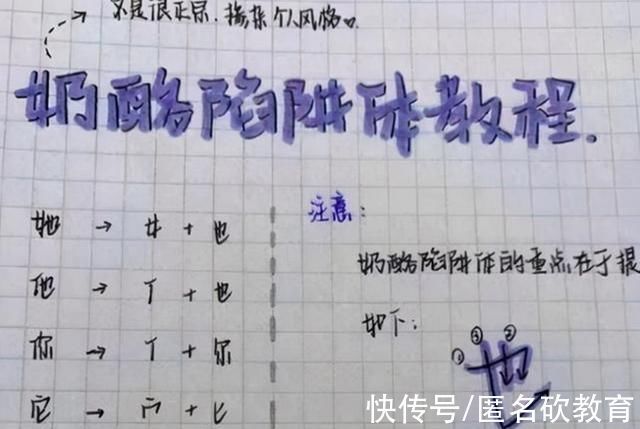 不是很正宗.掺杂个人风格。
奶酪陷阱体教程.
她 → 女 + 也
他 → 亻 + 也
你 → 亻 + 尔
它 → 宀 + 匕
注意:
奶酪陷阱体的重点在于提
如下:
① ③ ②
也
快传号/匿名砍教育